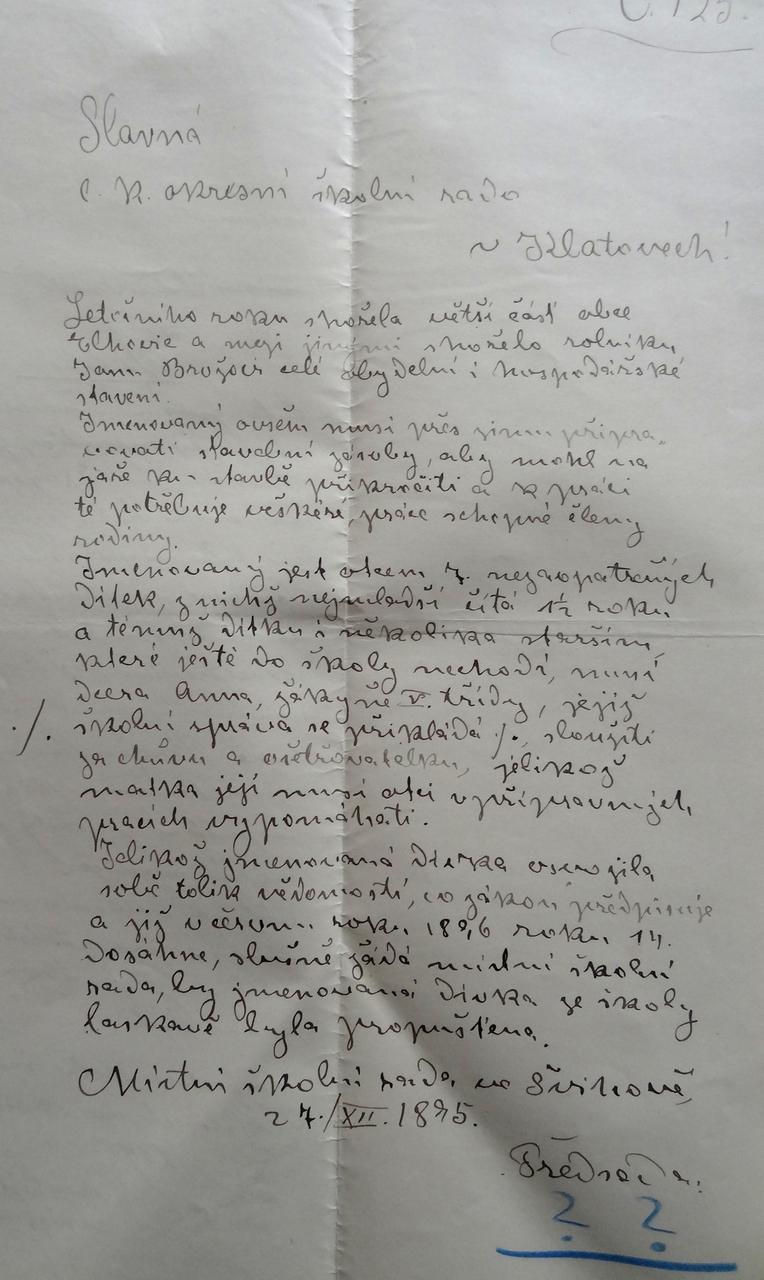 Č. 125.
Slavná
c. k. okresní školní rado
v Klatovech!
Letošního roku shořela větší část obce
a mezi jinými shořelo rolníku
Janu Brožovi celé obydelní i hospodářské
stavení.
Jmenovaný ovšem musí přes zimu připra„
vovati stavební zásoby, aby mohl na
jaře ku stavbě přikročiti a k práci
té potřebuje veškeré, práce schopné členy
rodiny.
Jmenovaný jest otcem 7. nezaopatřených
dítek, z nichž nejmladší čítá 1/2 roku
a témuž dítku i několika starším,
které ještě do školy nechodí, musí
dcera Anna, žákyně V. třídy, jejíž
./. školní správa se přikládá ./., sloužiti
za chůvu a ošetřovatelku, jelikož
matka její musí otci v přípravných
pracích vypomáhati.
Jelikož jmenovaná dívka osvojila
sobě tolik vědomostí, co zákon předpisuje
a již v červnu roku 1896 roku 14.
dosáhne, slušně žádá místní školní
rada, by jmenovaná dívka ze školy
laskavě byla propuštěna.
Místní školní rada ve Švihově,
27./XII. 1895.
Předseda:
? ?